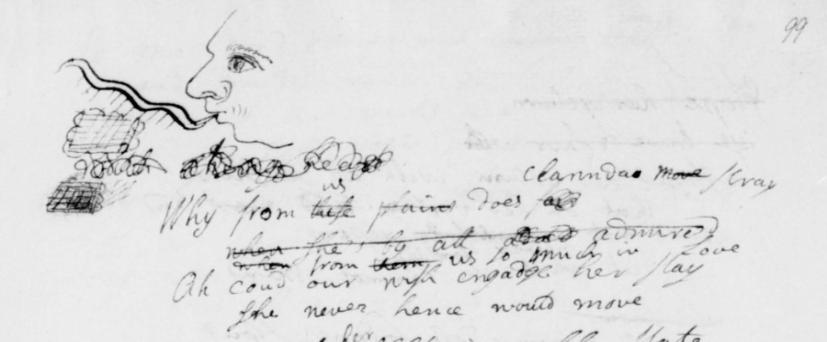 99
Clarinda move stray
us
Why from these plains does
when she's by all admired
when from them us so much in Love
Ah coud our wish engadge her stay
she never hence would move